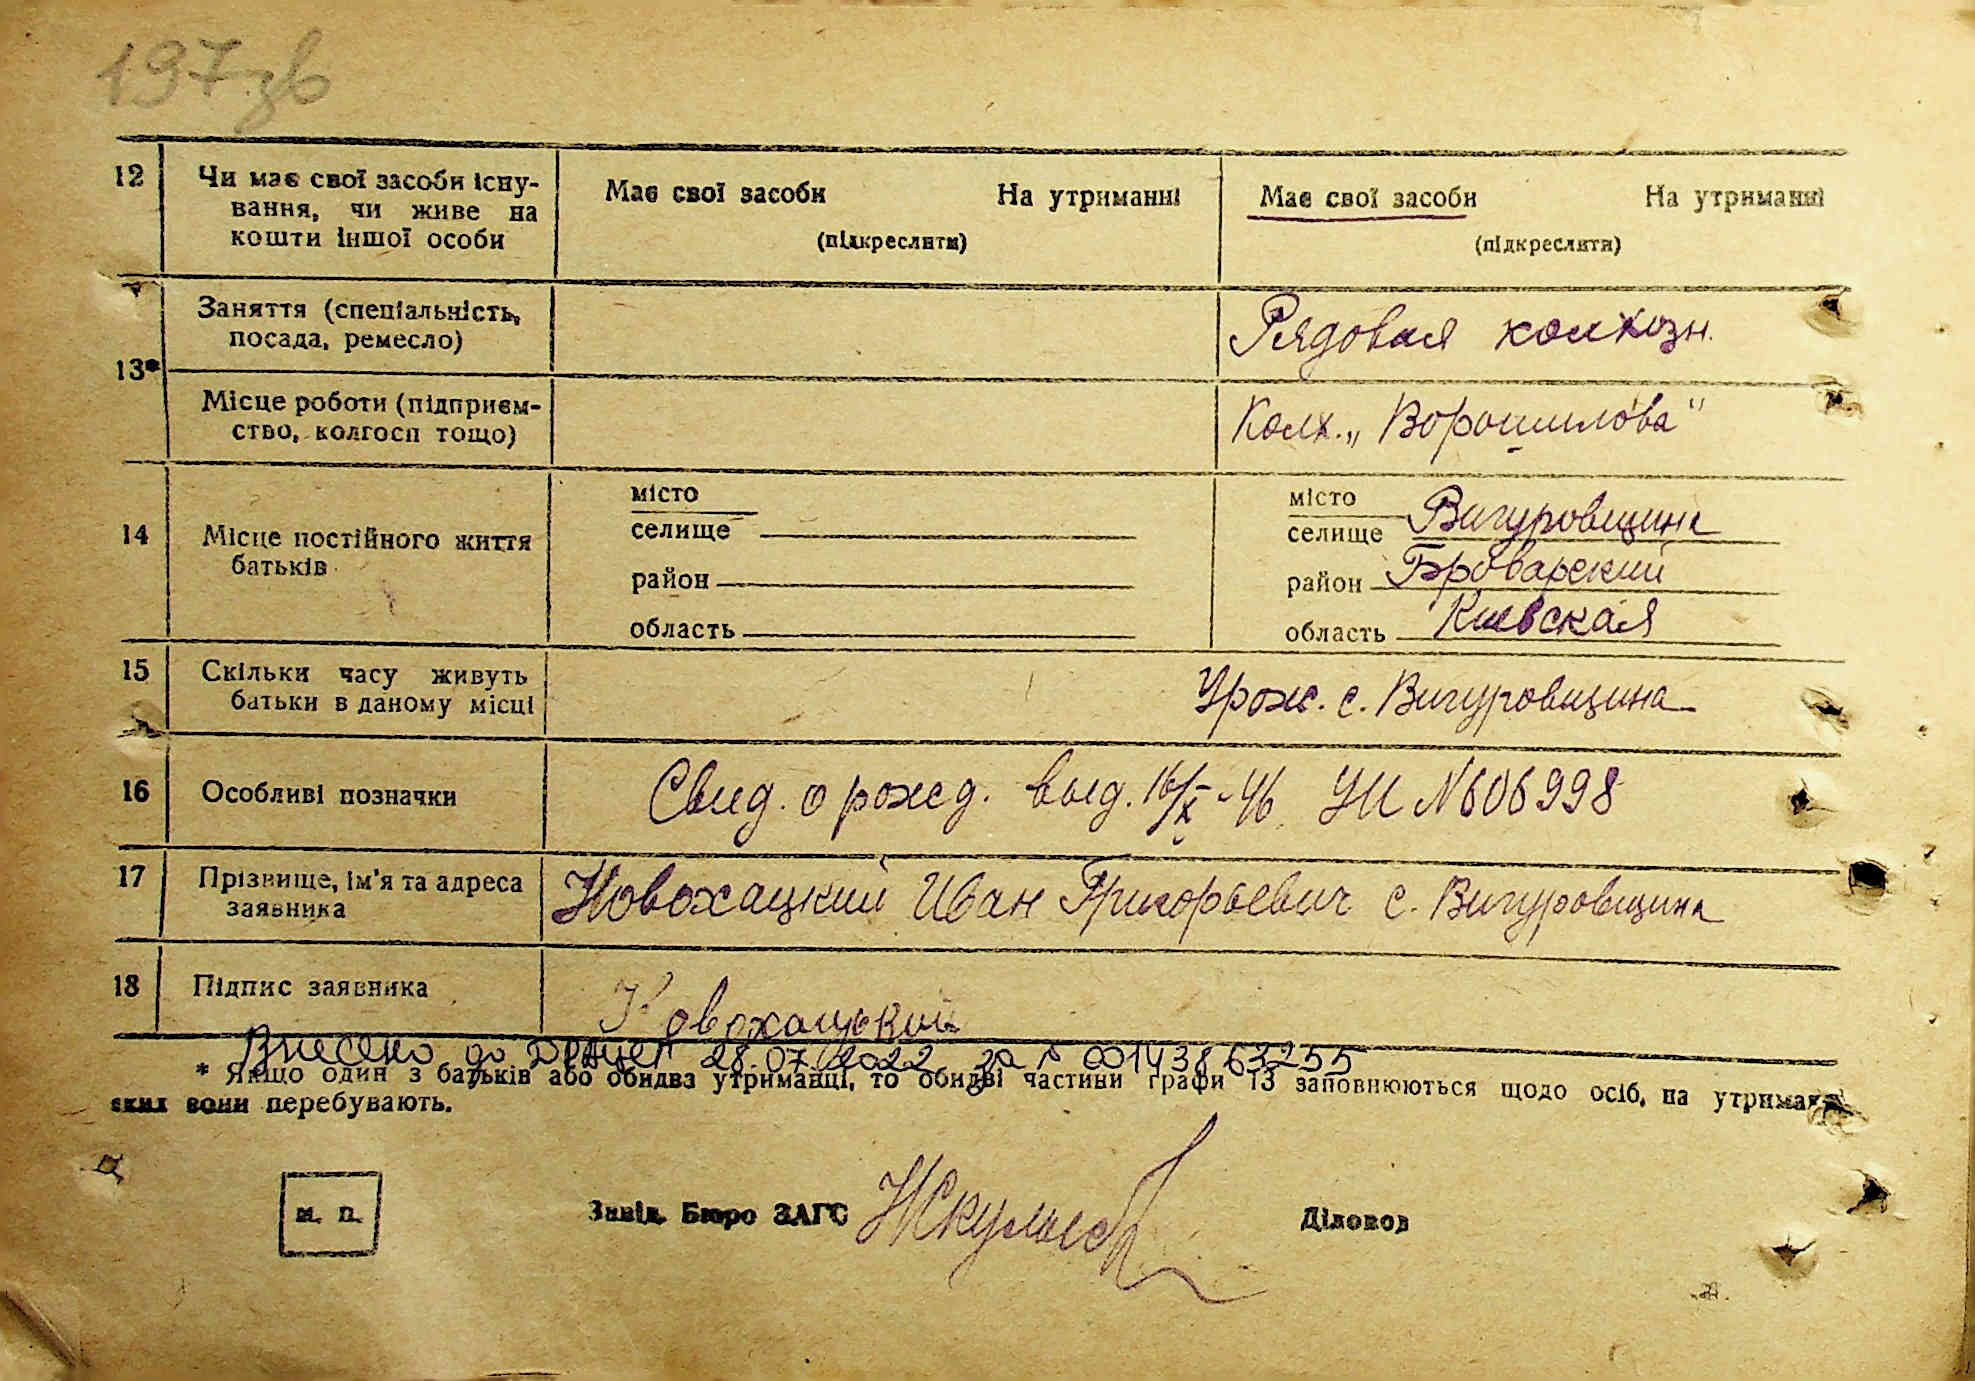 197 зв
12 Чи має свої засоби існу-
вання, чи живе на
кошти іншої особи
Має свої засоби На утриманні
(підкреслити)
Має свої засоби На утриманні
(підкреслити)
13*
Заняття (спеціальність,
посада, ремесло)
Рядовая колхозн.
Місце роботи (підприєм-
ство, колгосп тощо)
Колх. „Ворошилова"
14 Місце постійного життя
батьків
місто
селище
район
область
місто
селище Вигуровщина
район Броварский
область Киевская
15 Скільки часу живуть
батьки в даному місці
Урож. с. Вигуровщина
16 Особливі позначки
Свид. о рожд. выд. 16/X-46 УИ N606998
17 Прізвище, ім'я та адреса
заявника
Новохацкий Иван Григорьевич с. Вигуровщина
18 Підпис заявника
Новохацький
Внесено до ДРАЦСГ 28.07.2022 за № 00143863255
* Якщо один з батьків або обидва утриманці, то обидві частини графи 13 заповнюються щодо осіб, на утриман
яких вони перебувають.
м. п.
Завід. Бюро ЗАГС
Діловод